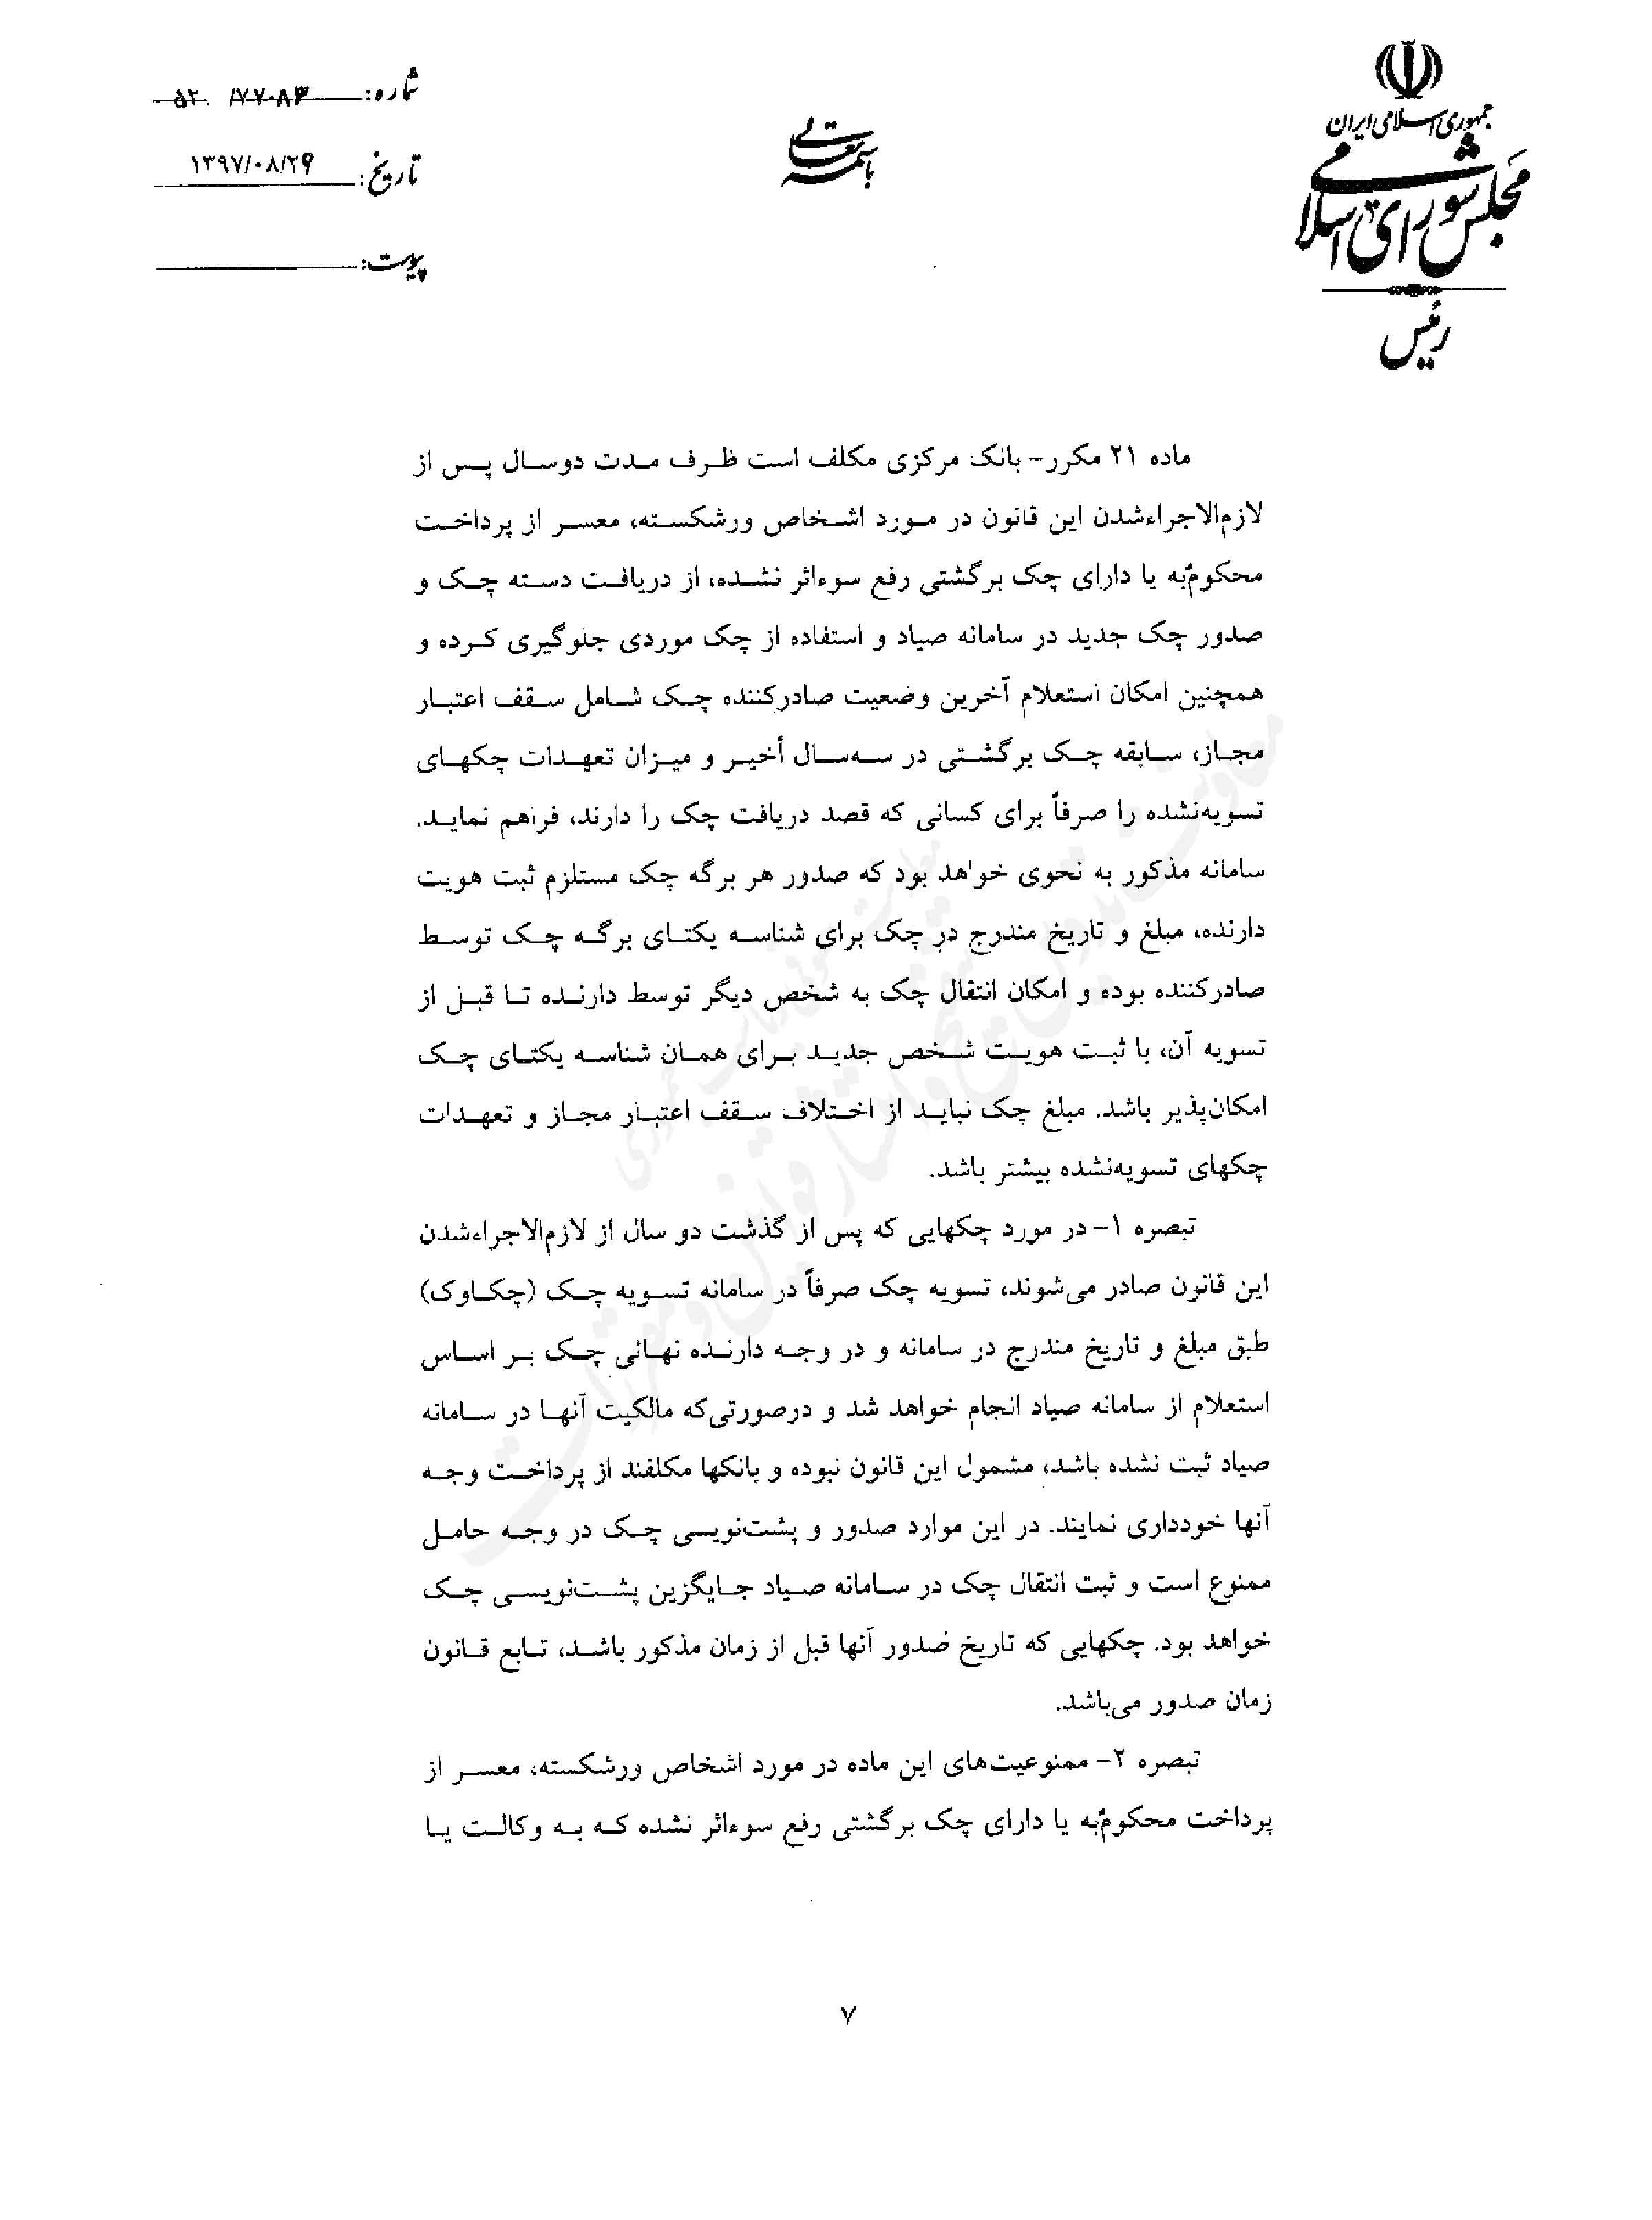 جمهوری اسلامی ایران
مجلس شورای اسلامی
رئیس
باسمه تعالی
شماره: ۵۲۰/۷۷۰۸۳
تاریخ: ۱۳۹۷/۰۸/۲۹
پیوست:
ماده ۲۱ مکرر- بانک مرکزی مکلف است ظرف مدت دوسال پس از
لازم‌الاجراءشدن این قانون در مورد اشخاص ورشکسته، معسر از پرداخت
محکومٌ‌به یا دارای چک برگشتی رفع سوءاثر نشده، از دریافت دسته چک و
صدور چک جدید در سامانه صیاد و استفاده از چک موردی جلوگیری کرده و
همچنین امکان استعلام آخرین وضعیت صادرکننده چک شامل سقف اعتبار
مجاز، سابقه چک برگشتی در سه‌سال أخیر و میزان تعهدات چکهای
تسویه‌نشده را صرفاً برای کسانی که قصد دریافت چک را دارند، فراهم نماید.
سامانه مذکور به نحوی خواهد بود که صدور هر برگه چک مستلزم ثبت هویت
دارنده، مبلغ و تاریخ مندرج در چک برای شناسه یکتای برگه چک توسط
صادرکننده بوده و امکان انتقال چک به شخص دیگر توسط دارنده تا قبل از
تسویه آن، با ثبت هویت شخص جدید برای همان شناسه یکتای چک
امکان‌پذیر باشد. مبلغ چک نباید از اختلاف سقف اعتبار مجاز و تعهدات
چکهای تسویه‌نشده بیشتر باشد.
تبصره ۱- در مورد چکهایی که پس از گذشت دو سال از لازم‌الاجراءشدن
این قانون صادر می‌شوند، تسویه چک صرفاً در سامانه تسویه چک (چکاوک)
طبق مبلغ و تاریخ مندرج در سامانه و در وجه دارنده نهائی چک بر اساس
استعلام از سامانه صیاد انجام خواهد شد و درصورتی‌که مالکیت آنها در سامانه
صیاد ثبت نشده باشد، مشمول این قانون نبوده و بانکها مکلفند از پرداخت وجه
آنها خودداری نمایند. در این موارد صدور و پشت‌نویسی چک در وجه حامل
ممنوع است و ثبت انتقال چک در سامانه صیاد جایگزین پشت‌نویسی چک
خواهد بود. چکهایی که تاریخ صدور آنها قبل از زمان مذکور باشد، تابع قانون
زمان صدور می‌باشد.
تبصره ۲- ممنوعیت‌های این ماده در مورد اشخاص ورشکسته، معسر از
پرداخت محکومٌ‌به یا دارای چک برگشتی رفع سوءاثر نشده که به وکالت یا
۷